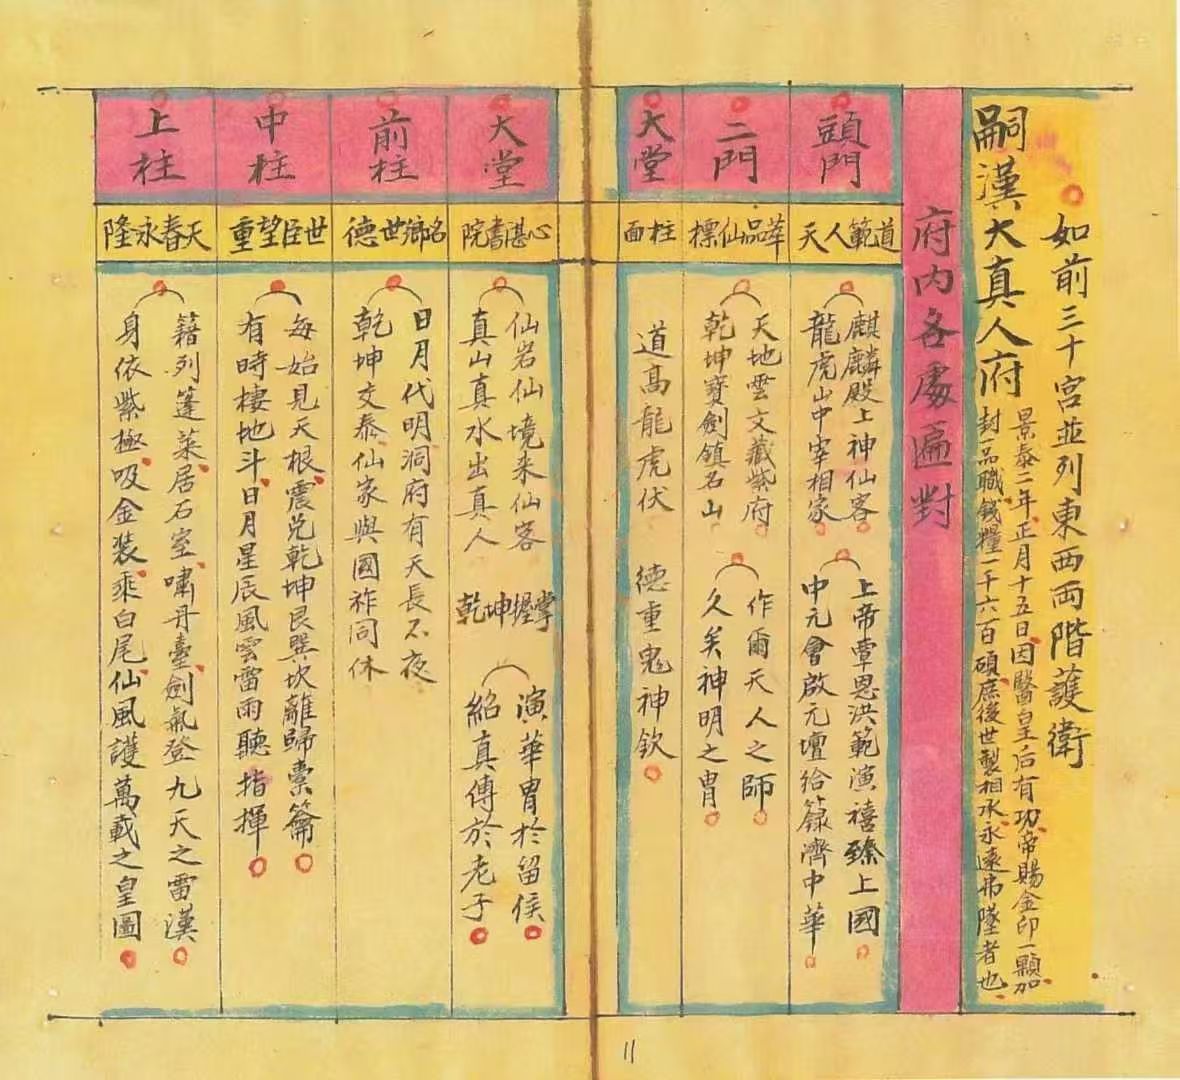 如前三十宮並列東西兩階護衛
嗣漢大真人府
景泰二年正月十五日因醫皇后有功帝賜金印一顆加
封一品職錢糧一千六百碩庶後世製相水永遠弗墜者也
府內各處匾對
頭門
道範人天
麒麟殿上神仙客
龍虎山中宰相家
上帝覃恩洪範演禧臻上國
中元會啟元壇給籙濟中華
二門
萃品仙標
天地雲文藏紫府
乾坤寶劍鎮名山
作爾天人之師
久矣神明之胄
大堂
柱面
道高龍虎伏
德重鬼神欽
大堂
心湛書院
仙岩仙境來仙客
真山真水出真人
掌握坤乾
演華胄於留侯
紹真傳於老子
前柱
名鄉世德
日月代明洞府有天長不夜
乾坤交泰仙家與國祚同休
中柱
世臣望重
每始見天根震兌乾坤艮巽坎離歸橐籥
有時棲地斗日月星辰風雲雷雨聽指揮
上柱
天春永隆
籍列篷萊居石室嘯丹臺劍氣登九天之雷漢
身依紫極吸金裝乘白尾仙風護萬載之皇圖
11